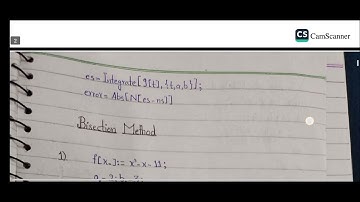 CS CamScanner
2
es = Integrate[g[t], {t,a,b}];
error = Abs[N[es-ns]]
Bisection Method
1)
f[x_]:= x³-x-11;
a = 2; b = 3;